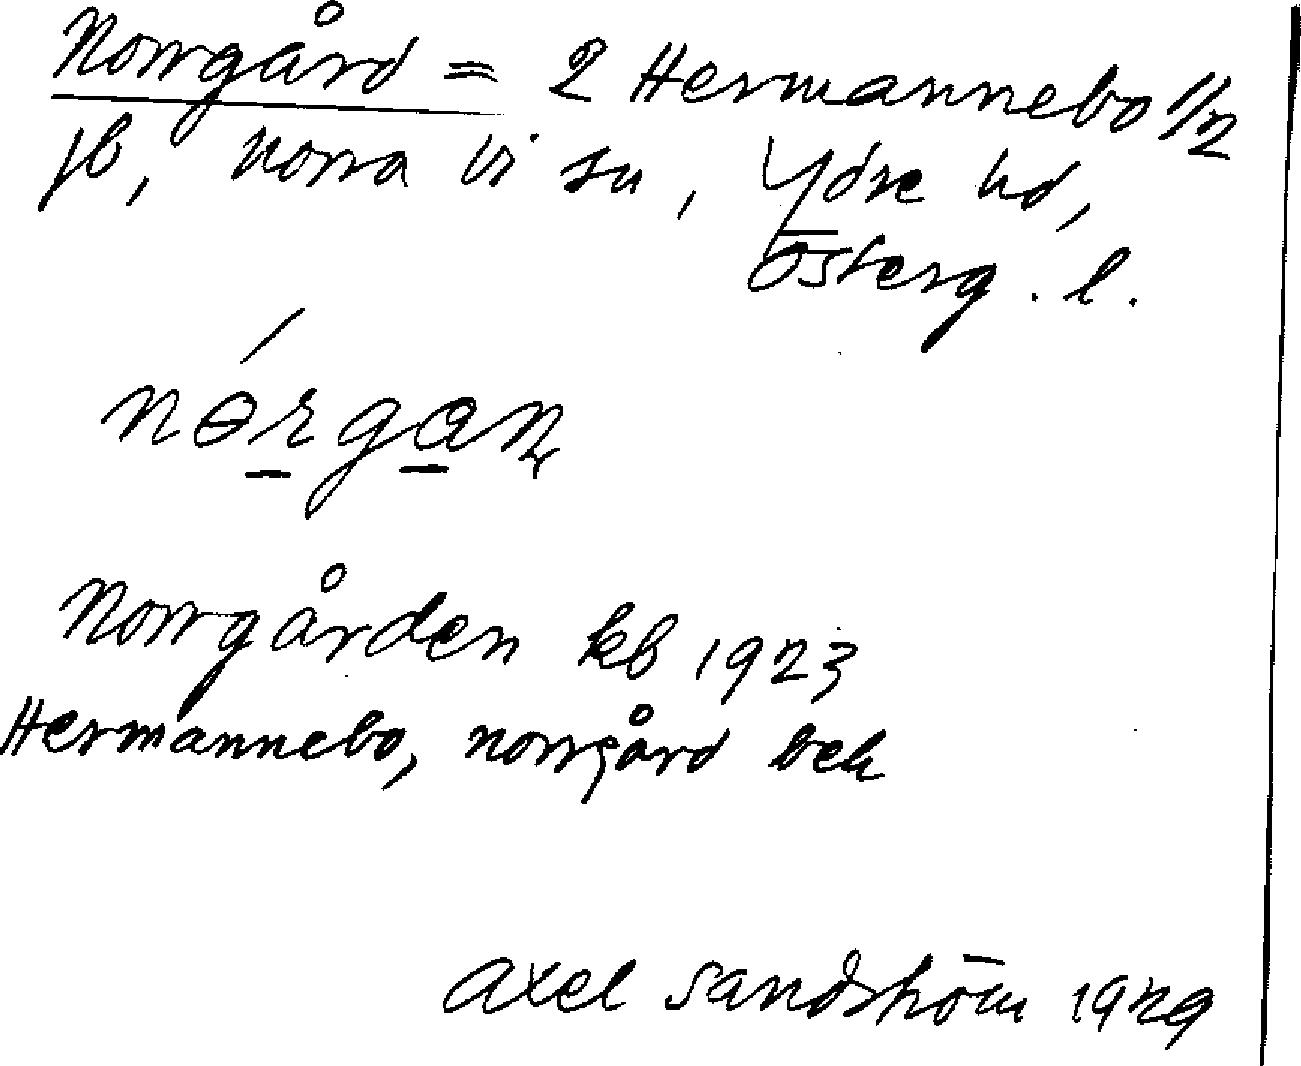 Norrgård = 2 Hermannebo 1/2
jb, Norra Vi sn, Ydre hd,
Österg. l.
nɵ́rgan
Norrgården kb 1923
Hermannebo, norrgård bek
Axel Sandström 1929